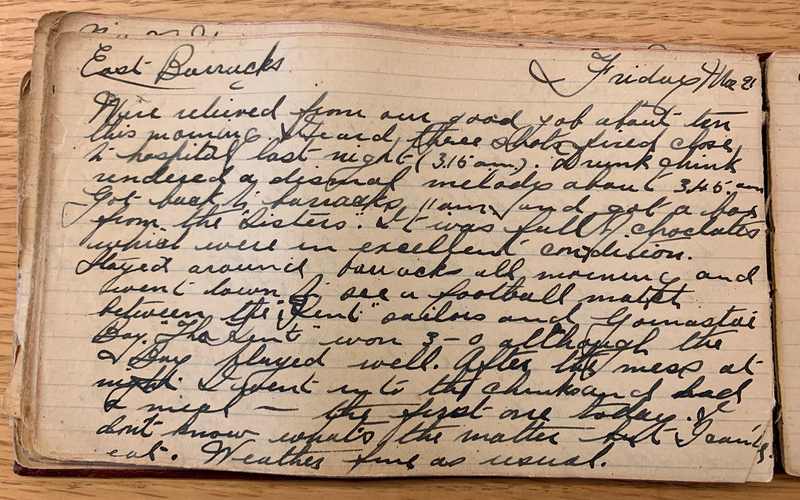 East Barracks Friday Mar 21
Were relieved from our good job about ten
this morning. Heard three shots fired close
to hospital last night (3.15 am). Drunk chink
rendered a dismal melody about 3.45 am
Got back to barracks 11 am and got a box
from the "Sisters". It was full of choclates
which were in excellent condition.
Stayed around barracks all morning and
went down to see a football match
between the "Kent" sailors and
Bay. The "Kent" won 3-0 although the
G Bay played well. After the mess at
night I went into the chinks and had
a meal — the first one today. I
don't know what's the matter but I can't
eat. Weather fine as usual.